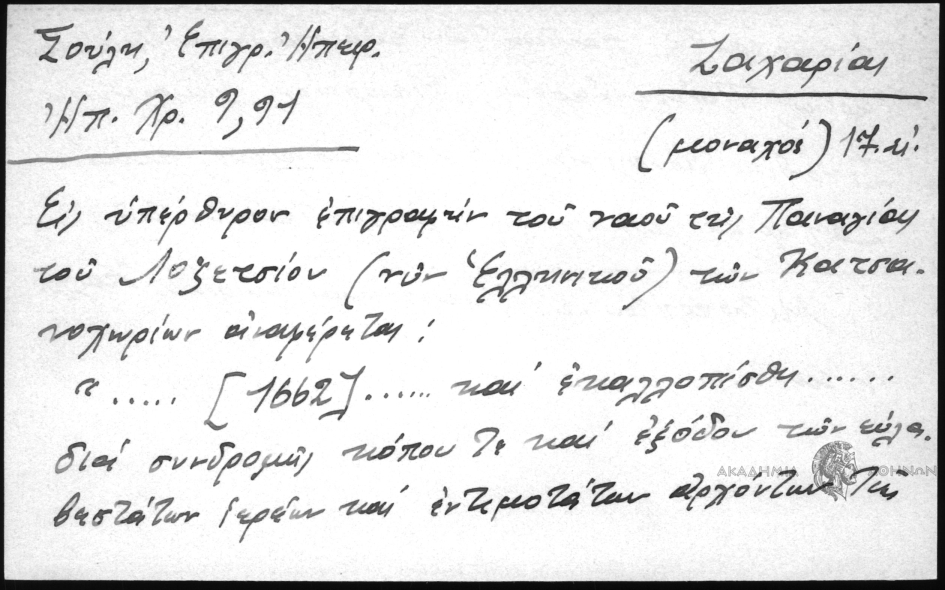 Σούλη, Ἐπιγρ. Ἠπειρ.
Ἠπ. Χρ. 9, 91
Ζαχαρίας
(μοναχός) 17. αἰ.
Εἰς ὑπέρθυρον ἐπιγραφὴν τοῦ ναοῦ τῆς Παναγίας
τοῦ Λοζετσίου (νῦν Ἑλληνικοῦ) τῶν Κατσα-
νοχωρίων ἀναφέρεται:
“ ..... [1662] ...... καὶ ἐκαλλοπίσθη ......
διὰ συνδρομῆς κόπου τε καὶ ἐξόδου τῶν εὐλα-
βεστάτων ἱερέων καὶ ἐντιμοτάτων ἀρχόντων τῆς
ΑΚΑΔΗΜΙΑ ΑΘΗΝΩΝ